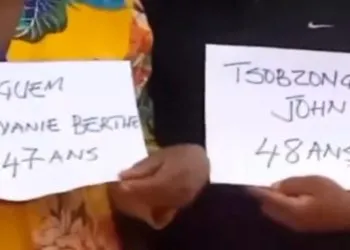 GUEM
YANIE BERTHE
47 ANS
TSOBZONG
JOHN
48 ANS